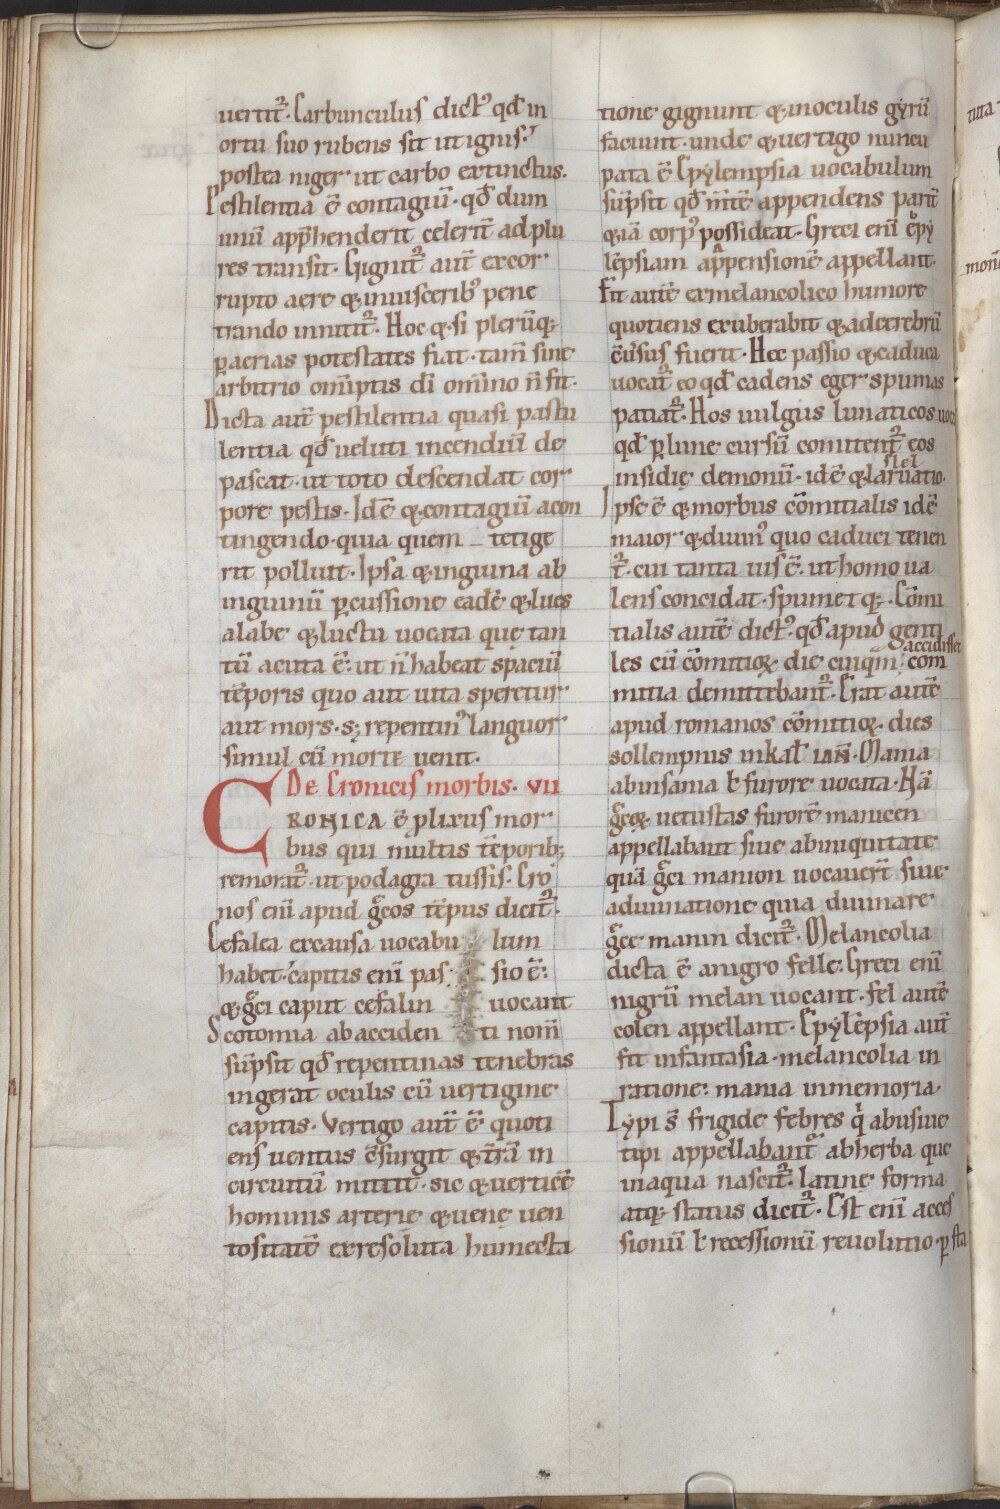 uertit᷑. Carbunculus dictꝰ qd̄ in
ortu suo rubens sit ut ignis.
postea niger ut carbo extinctus.
Pestilentia ē contagiū. qd̄ dum
unū app̄henderit celerit̄ ad plu
res transit. Gignit᷑ aut̄ ex cor
rupto aere & in uisceribꝰ pene
trando innitit᷑. Hoc & si plerūq;
ꝑ aerias potestates fiat. tam̄ sine
arbitrio om̄iptis dī om̄ino n̄ fit.
Dicta aut̄ pestilentia quasi pastu
lentia qd̄ ueluti incendiū de
pascat. ut toto descendat cor
pore pestis. Idē & contagiū a con
tingendo. quia quem tetige
rit polluit. Ipsa & inguina ab
inguinū ꝑcussione eadē & lues
a labe & luctu uocata quę tan
tū acuta ē. ut n̄ habeat spaciū
tēporis quo aut uita speretur
aut mors. s; repentinꝰ languor
simul cū morte uenit.
De Cronicis morbis. VII
CRONICA ē plixus mor
bus qui multis tēporib;
remorat᷑. ut podagra tussis. Cro
nos eni apud gͨcos tēpus dicit᷑.
Cefalea ex causa uocabulum
habet. capitis eni passio ē.
& gͨci caput cefalin uocant
Scotomia ab accidenti nom̄
sūpsit qd̄ repentinas tenebras
ingerat oculis cū uertigine
capitis. Vertigo aut̄ ē quoti
ens uentus c̄surgit & t̄rā in
circuitū mittit. sic & uerticē
hominis arterię & uenę uen
tositatē ex resoluta humecta
tione gignunt & in oculis gyrū
faciunt. unde & uertigo nuncu
pata ē Epylempsia uocabulum
sūpsit qd̄ m̄tē appendens parit̄
& iā corpꝰ possideat. Greci eni epy
lēpsiam appensionē appellant.
Fit autē ex melancolico humore
quotiens exuberabit & ad cerebrū
c̄uersus fuerit. Hec passio & caduca
uocat᷑ eo qd̄ cadens eger spumas
patiat᷑. Hos uulgus lunaticos uoc
qd̄ ꝑ lune cursū comitent᷑ eos
insidię demonū. idē & laruatio.
Ipse ē & morbus cōmitialis idē
maior & diuinꝰ quo caduci tenen
t᷑. cui tanta uis ē. ut homo ua
lens concidat. spumet q;. Cōmi
tialis autē dictꝰ. qd̄ apud genti
les cū cōmitioꝝ die cuiqm̄ accidisset com
mitia demittebant᷑. Erat autē
apud romanos cōmitioꝝ dies
sollempnis in kal̄ IAN̄. Mania
ab insania ł furore uocata. Hā
gͨcoꝝ uetustas furorē manicen
appellabant siue ab iniquitate
quā gͨci manion uocauer̄t siue
a diuinatione quia diuinare
gͨce manin dicit᷑. Melancolia
dicta ē a nigro felle: Greci eni
nigrū melan uocant. fel autē
colen appellant. Epylēpsia aut̄
fit in fantasia. melancolia in
ratione: mania in memoria.
Typi s̄ frigide febres q̇ abusiue
tipi appellabant᷑ ab herba que
in aqua nascit᷑. latinę forma
atq; status dicit᷑. Est eni acces
sionū ł recessionū reuolutio ꝑ sta